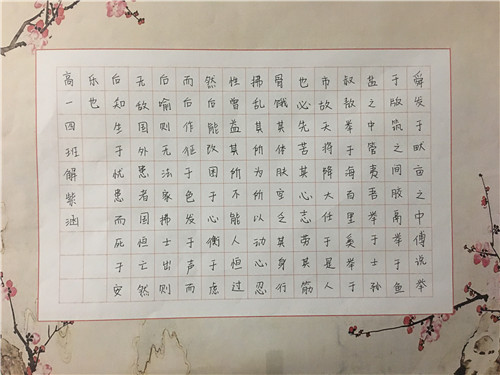 舜发于畎亩之中傅说举
于版筑之间胶鬲举于鱼
盐之中管夷吾举于士孙
叔敖举于海百里奚举于
市故天将降大任于是人
也必先苦其心志劳其筋
骨饿其体肤空乏其身行
拂乱其所为所以动心忍
性曾益其所不能人恒过
然后能改困于心衡于虑
而后作征于色发于声而
后喻则无法家拂士出则
无敌国外患者国恒亡然
后知生于忧患而死于安
乐也
高一四班解紫涵